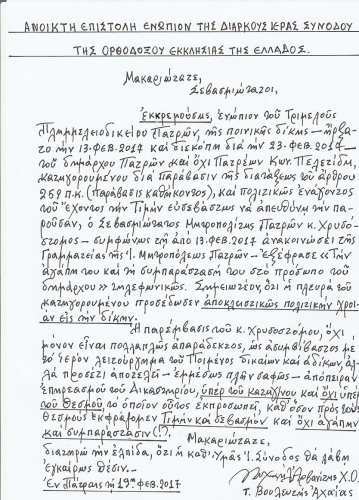 ΑΝΟΙΚΤΗ ΕΠΙΣΤΟΛΗ ΕΝΩΠΙΟΝ ΤΗΣ ΔΙΑΡΚΟΥΣ ΙΕΡΑΣ ΣΥΝΟΔΟΥ
ΤΗΣ ΟΡΘΟΔΟΞΟΥ ΕΚΚΛΗΣΙΑΣ ΤΗΣ ΕΛΛΑΔΟΣ.
Μακαριώτατε,
Σεβασμιώτατοι,
Ἐκκρεμούσης, ἐνώπιον τοῦ Τριμελοῦς
Πλημμελειοδικείου Πατρῶν, τῆς ποινικῆς δίκης – ἤρξα-
το τήν 13-ΦΕΒ. 2017 καί διεκόπη διά τήν 23-ΦΕΒ. 2017 –
τοῦ δημάρχου Πατρῶν καί ὄχι Πατρέων Κων. Πελετίδη,
κατηγορουμένου διά παράβασιν τῆς διατάξεως τοῦ ἄρθρου
259 π.κ. (παράβασις καθήκοντος), καί πολιτικῶς ἐνάγοντος
τοῦ ἔχοντος τήν Τιμήν εὐσεβάστως νά ἀπευθύνῃ τήν πα-
ροῦσαν, ὁ Σεβασμιώτατος Μητροπολίτης Πατρῶν κ. Χρυσό-
στομος – συμφώνως τῇ ἀπό 13.ΦΕΒ. 2017 ἀνακοινώσει τῆς
Γραμματείας τῆς Ἱ. Μητροπόλεως Πατρῶν – ἐξέφρασε «Τήν
ἀγάπη του καί τή συμπαράστασή του στό πρόσωπο τοῦ
δημάρχου» τηλεφωνικῶς. Σημειωτέον, ὅτι ἡ πλευρά τοῦ
κατηγορουμένου προσέδωσεν ἀποκλειστικῶς πολιτικήν χροι-
άν εἰς τήν δίκην.
Ἡ παρέμβασις τοῦ κ. Χρυσοστόμου, ὄχι
μόνον εἶναι πολλαπλῶς ἀπαράδεκτος, ὡς ἀσυμβίβαστος με
τό ἱερόν λειτούργημα τοῦ Ποιμένος δικαίων καί ἀδίκων, ἀλ-
λά προσέτι ἀποτελεῖ – ἐμμέσως πλήν σαφῶς – ἀπόπειραν
ἐπηρεασμοῦ τοῦ Δικαστηρίου, ὑπέρ τοῦ κατηγ/νου καί ὄχι ὑπέρ
τοῦ Θεσμοῦ τό ὁποῖον οὗτος ἐκπροσωπεῖ, καθ' ὅσον πρός τούς
θεσμούς ἐκφράζομεν Τιμήν καί σεβασμόν καί ὄχι ἀγάπην
καί συμπαράστασιν(!).
Μακαριώτατε,
διατηρῶ τήν ἐλπίδα, ὅτι ἡ καθ' Ὑμᾶς Ἱ. Σύνοδος θά λάβῃ
ἐγκαίρως θέσιν.
Ἐν Πάτραις τῇ 19ῃ ΦΕΒ. 2017
τ. Βουλευτής Ἀχαΐας